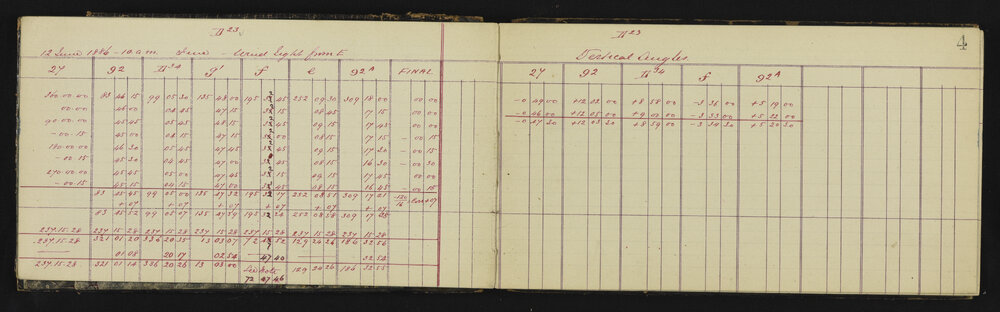 II 23
12 June 1886 - 10 a.m. fine - Wind light from E
27 92 II 34 g' f e 92A FINAL
360.00.00 83 46 15 99 05 30 135 48 00 195 45 252 09 30 309 18 00 00 00
00.00 46 00 04 45 47 15 15 08 45 17 15 00 00
90.00.00 45 45 05 45 48 15 45 09 15 17 45 00 00
- 00.15 45 00 04 15 47 15 08 15 17 15 - 00 15
180.00.00 46 30 05 15 47 45 45 09 15 17 30 - 00 15
- 00 15 45 30 04 45 47 00 45 08 15 16 30 - 00 30
270.00.00 45 45 05 00 47 45 09 15 17 45 00 00
- 00.15 45 15 04 15 47 00 45 08 15 16 45 - 00 15
83 45 45 99 05 00 135 47 32 195 32 17 252 08 51 309 17 21
+ 07 + 07 + 07 + 07 + 07 + 07
83 45 52 99 05 07 135 47 39 195 32 24 252 08 58 309 17 28
237.15.28 237 15 28 237 15 28 237 15 28 237 15 28 237 15 28 237 15 28
237.15.28 321 01 20 336 20 35 13 03 07 72 47 52 129 24 26 186 32 56
01 08 20 17 02 54 47 40 32 54
237.15.28 321 01 14 336 20 26 13 03 00 See note 129 24 26 186 32 55
72 47 46
II 23
4
Vertical Angles
27 92 II 34 f 92A
-0 49 00 +12 02 00 +8 58 00 -3 36 00 +5 19 00
-0 46 00 +12 05 00 +9 00 00 -3 33 00 +5 22 00
-0 47 30 +12 03 30 +8 59 00 -3 34 30 +5 20 30